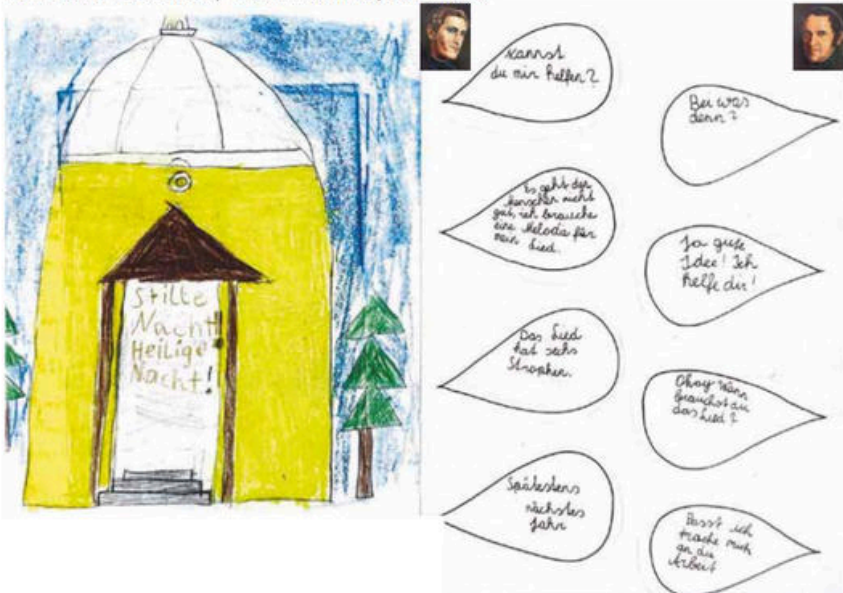 Stille
Nacht
Heilige
Nacht!
kannst
du mir helfen?
Bei was
denn?
Es geht den
Menschen nicht
gut, ich brauche
eine Melodie für
mein Lied.
Ja gute
Idee! Ich
helfe dir!
Das Lied
hat sechs
Strophen.
Okay Wann
brauchst du
das Lied?
Spätestens
nächstes
Jahr
Passt ich
mache mich
an die
Arbeit